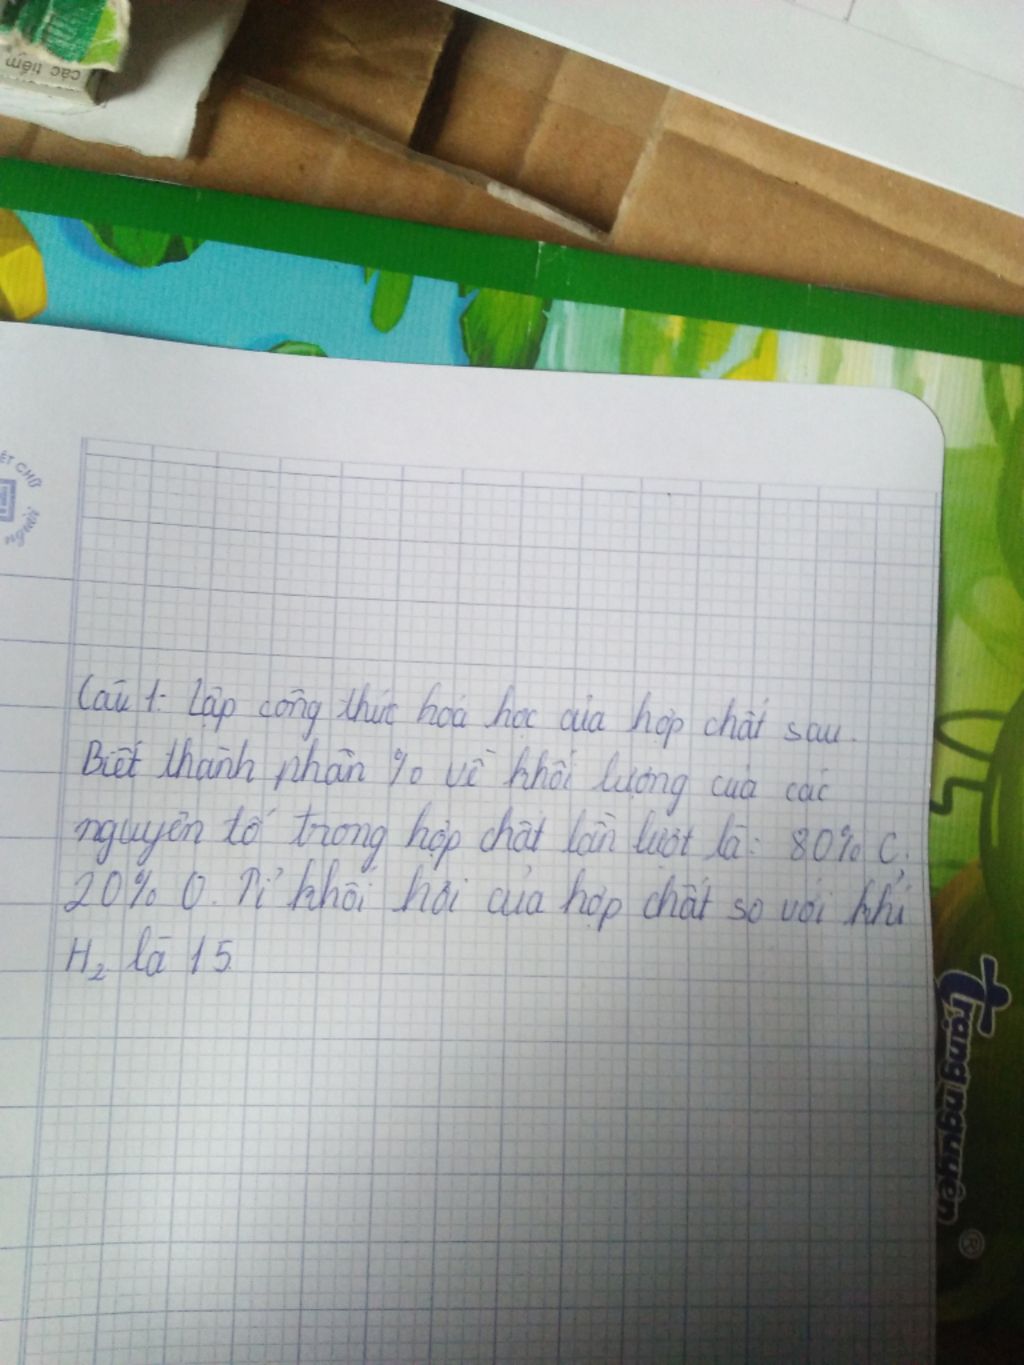 các tiềm
ỆT CHỮ
người
Câu 1: Lập công thức hoá học của hợp chất sau.
Biết thành phần % về khối lượng của các
nguyên tố trong hợp chất lần lượt là: 80% C.
20% O. Tỉ khối hơi của hợp chất so với khí
H₂ là 15.
Trạng nguyên ®